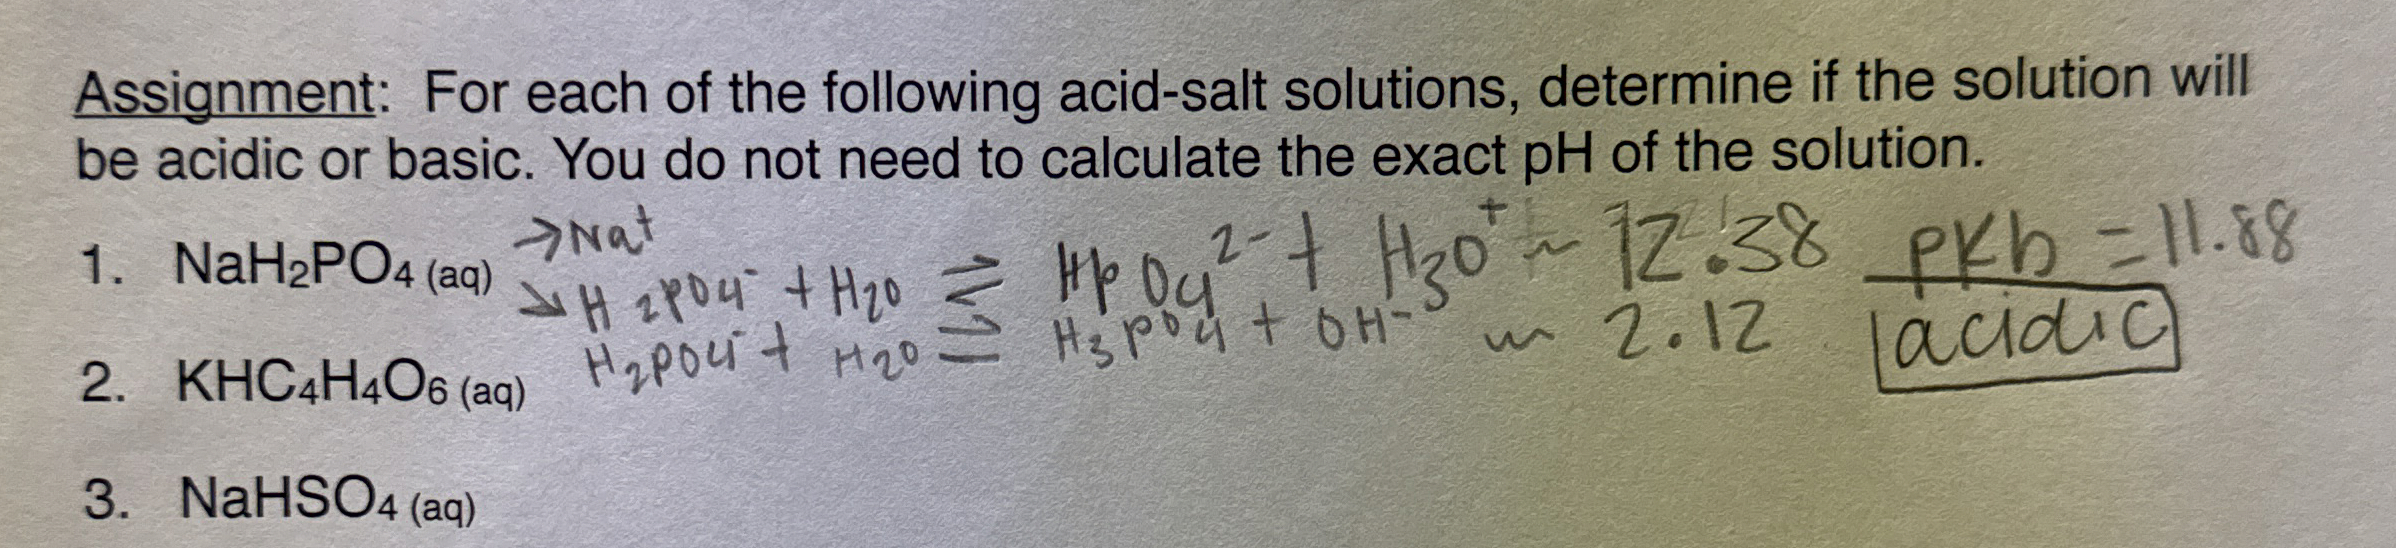 Assignment: For each of the following acid-salt solutions, determine if the solution will
be acidic or basic. You do not need to calculate the exact pH of the solution.
→Na⁺
1. NaH₂PO₄ (aq) ↘H₂PO₄⁻ + H₂O ⇌ HPO₄²⁻ + H₃O⁺ ~ 12.38 pKb = 11.88
H₂PO₄⁻ + H₂O ⇌ H₃PO₄ + OH⁻ ~ 2.12 acidic
2. KHC₄H₄O₆ (aq)
3. NaHSO₄ (aq)